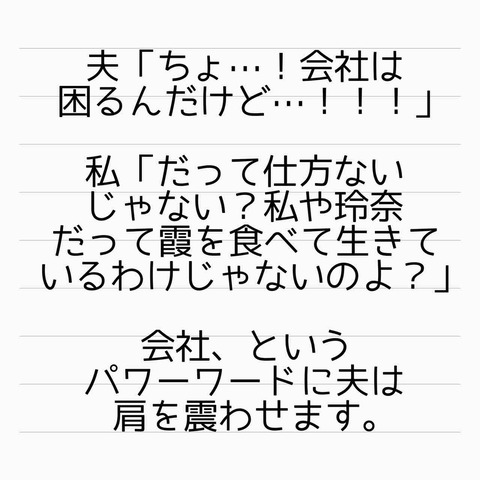 夫「ちょ…！会社は
困るんだけど…！！！」
私「だって仕方ない
じゃない？私や玲奈
だって霞を食べて生きて
いるわけじゃないのよ？」
会社、という
パワーワードに夫は
肩を震わせます。